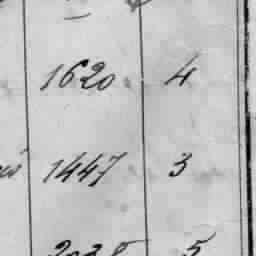 1620 4
1447 3
2038 5